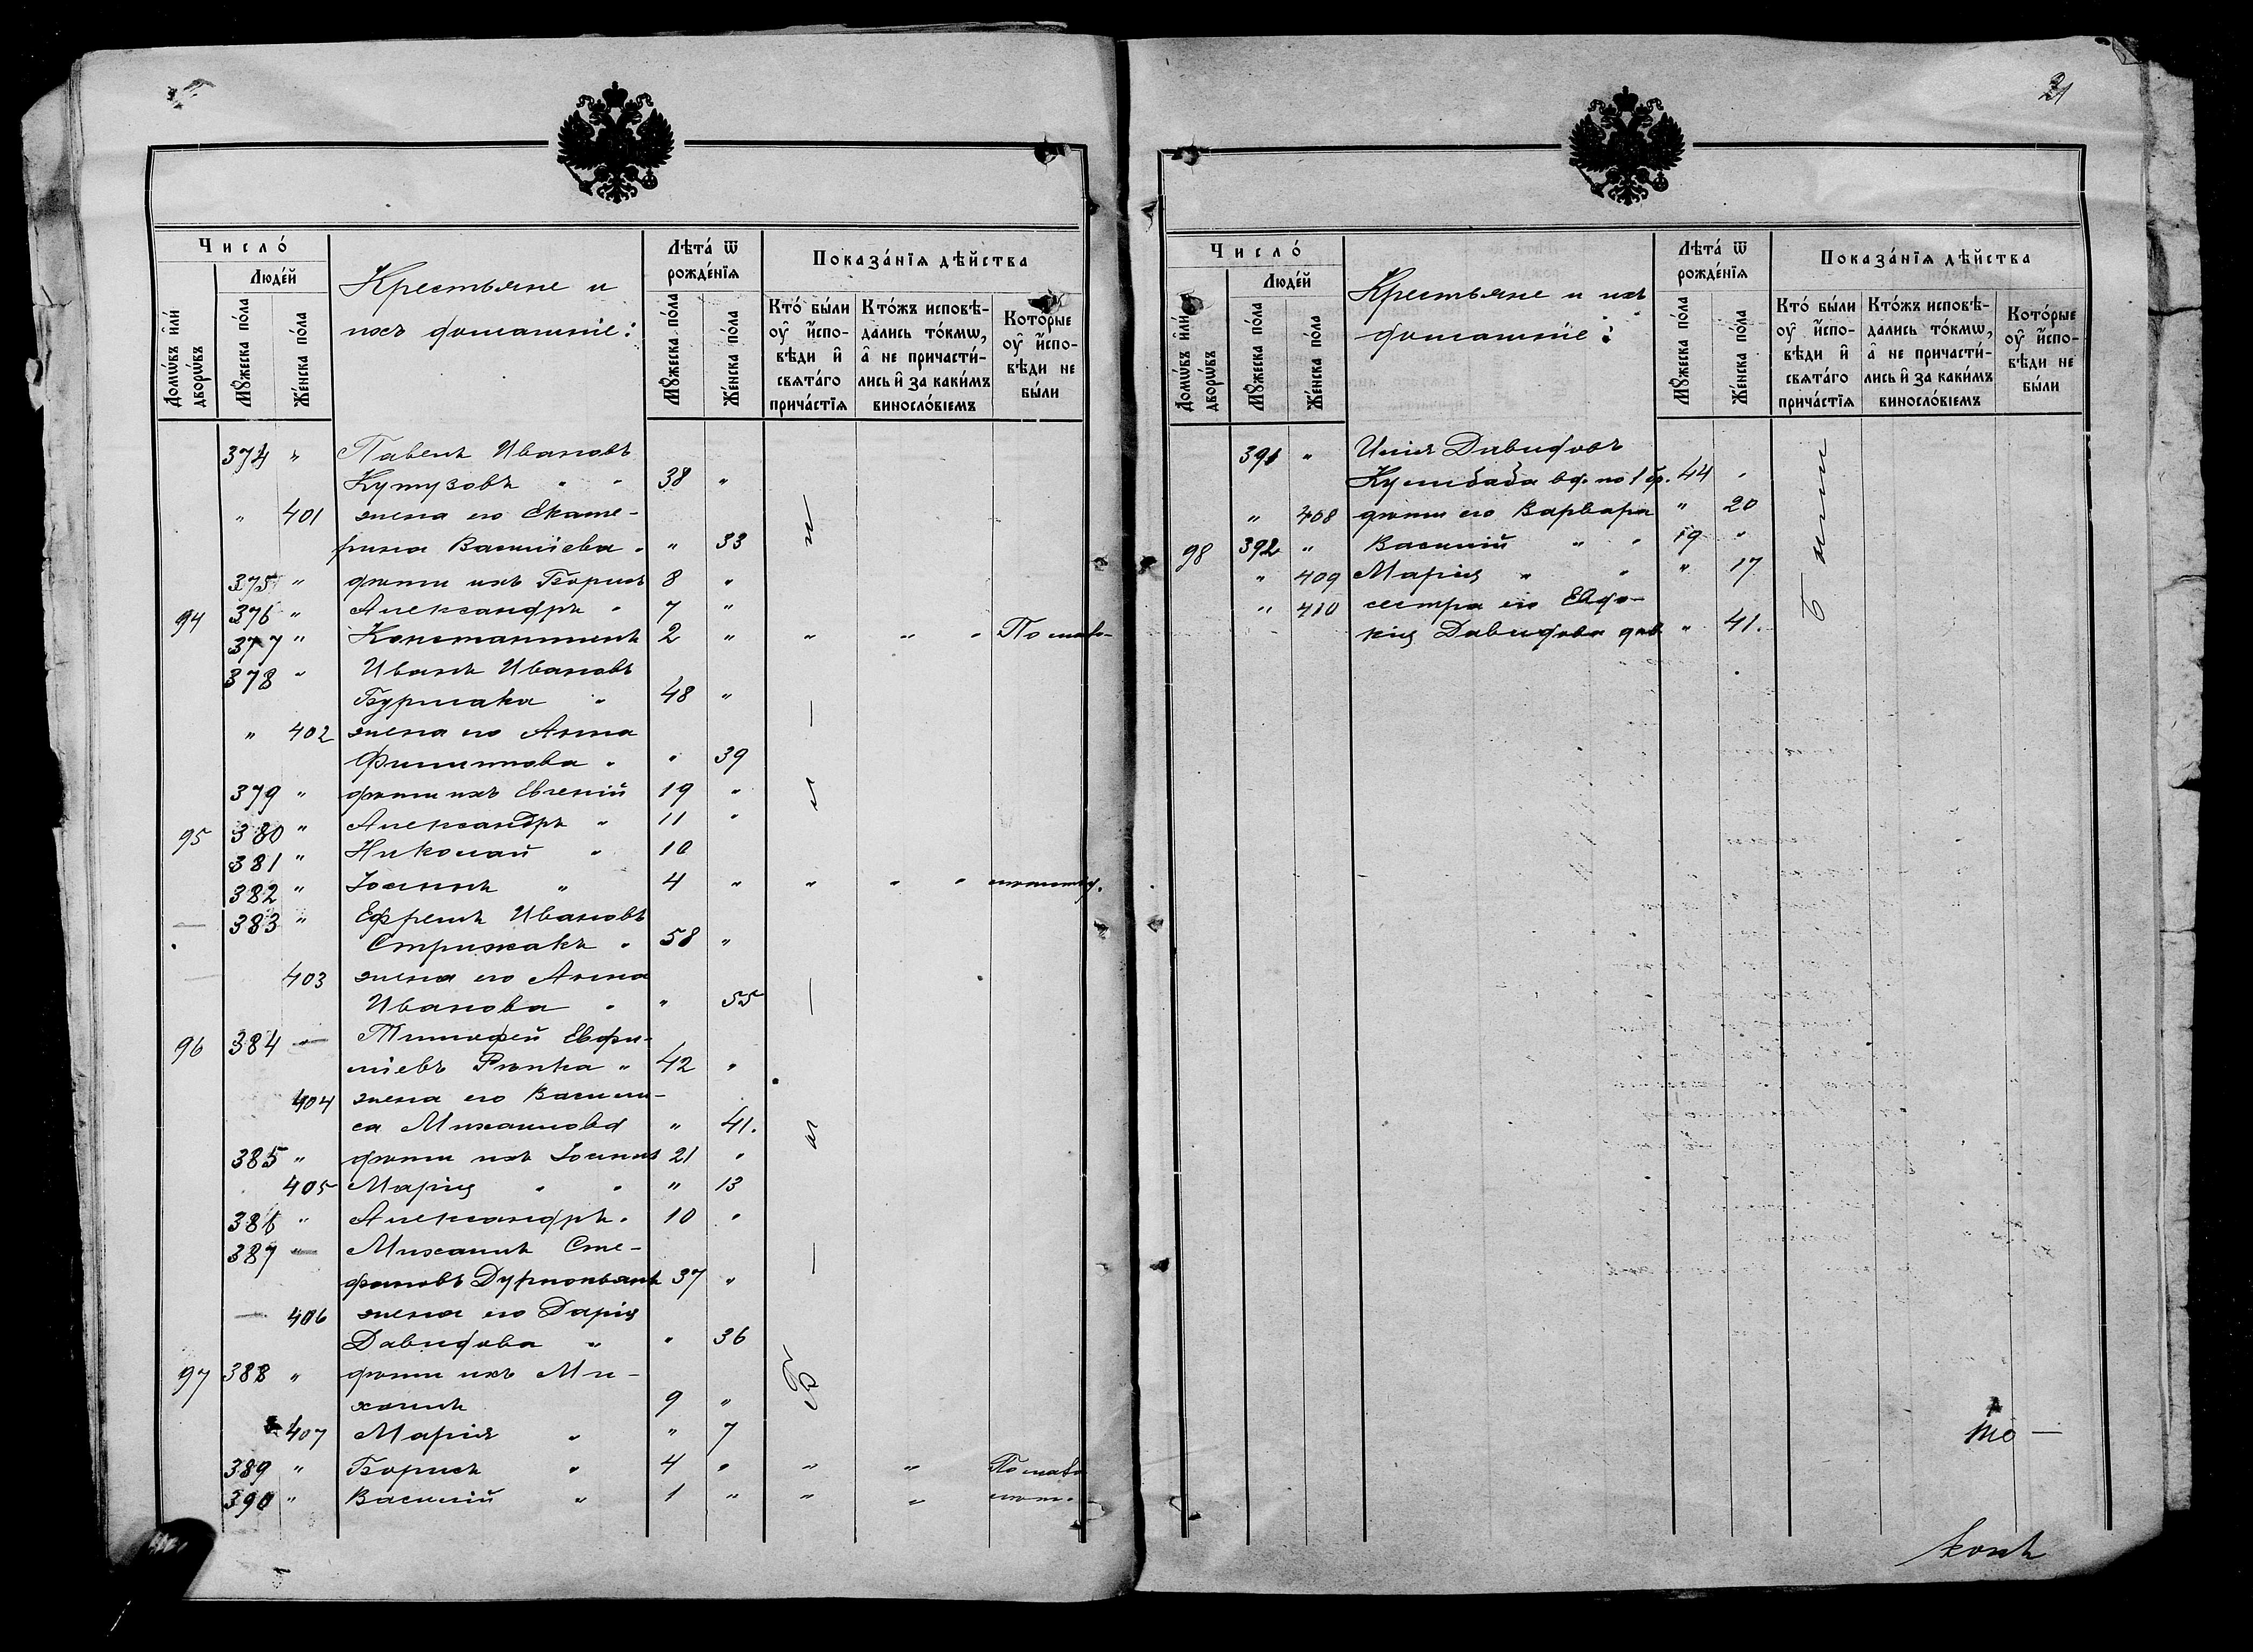 Число́
Люде́й
Домѡ́въ и҆лѝ дворѡ́въ
Мꙋ́жеска по́ла
Же́нска по́ла
Крестьяне и
ихъ домашніе:
Лѣта́ ѿ рожде́нїѧ
Мꙋ́жеска по́ла
Же́нска по́ла
Показа́нїѧ дѣ́йства
Кто̀ бы́ли оу҆ и҆спо-
вѣди и҆ свѧта́го прича́стїѧ
Кто́жъ исповѣ́-
дались то́кмѡ, а҆ не причасти́-
лись и҆ за каки́мъ винослóвїемъ
Кото́рые оу҆ и҆спо-
вѣди не бы́ли
374 " Павелъ Ивановъ
Кутузовъ " " 38 "
" 401 жена его Екате-
рина Василіева " " 33
375 " дѣти ихъ Борисъ 8 "
94 376 " Александръ " 7 "
377 " Константинъ 2 " " " " По мало-
378 " Иванъ Ивановъ
Бурлака " 48 "
" 402 жена его Анна
Филиппова " " 39
379 " дѣти ихъ Евгеній 19 "
95 380 " Александръ " 11 "
381 " Николай " 10
382 " Іоаннъ " 4 " " " "
383 " Ефремъ Ивановъ
Стрижакъ " 58 "
403 жена его Анна
Иванова " " 55
96 384 Тимофей Евфи-
міевъ Рѣпка " 42 "
404 жена его Васили-
са Михаилова " 41.
385 " дѣти ихъ Іоаннъ 21 "
405 Марія " " " 13
386 " Александръ " 10 "
387 Михаилъ Сте-
фановъ 37 "
406 жена его Дарія
Давидова " " 36
97 388 " дѣти ихъ Ми-
хаилъ 9 "
407 Марія " " 7
389 " Борисъ " 4 " " " По мало
390 " Василій " 1 " " " лѣт.
Число́
Люде́й
Домѡ́въ и҆лѝ дворѡ́въ
Мꙋ́жеска по́ла
Же́нска по́ла
Крестьяне и ихъ
домашніе:
Лѣта́ ѿ рожде́нїѧ
Мꙋ́жеска по́ла
Же́нска по́ла
Показа́нїѧ дѣ́йства
Кто̀ бы́ли оу҆ и҆спо-
вѣди и҆ свѧта́го прича́стїѧ
Кто́жъ исповѣ́-
дались то́кмѡ, а҆ не причасти́-
лись и҆ за каки́мъ винослóвїемъ
Кото́рые оу҆ и҆спо-
вѣди не бы́ли
391 " Илія Давидовъ
Кулибаба вд. по 1 бр. 44 "
" 408 дѣти его Варвара " 20
98 392 " Василій " " 19 "
" 409 Марія " " " 17
" 410 сестра его Евдо-
кія Давидова дѣв. " 41.